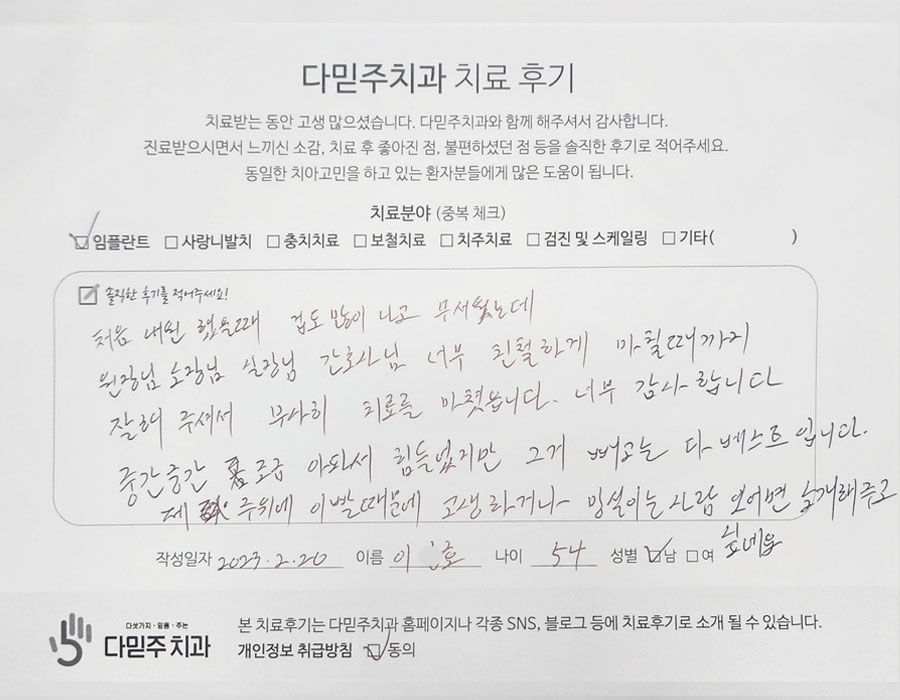 다믿주치과 치료 후기
치료받는 동안 고생 많으셨습니다. 다믿주치과와 함께 해주셔서 감사합니다.
진료받으시면서 느끼신 소감, 치료 후 좋아진 점, 불편하셨던 점 등을 솔직한 후기로 적어주세요.
동일한 치아고민을 하고 있는 환자분들에게 많은 도움이 됩니다.
치료분야 (중복 체크)
임플란트 사랑니발치 충치치료 보철치료 치주치료 검진 및 스케일링 기타( )
솔직한 후기를 적어주세요!
처음 내원 했을때 겁도 많이 나고 무서웠는데
원장님 소장님 실장님 간호사님 너무 친철하게 마칠때까지
잘해 주셔서 무사히 치료를 마쳣습니다. 너무 감사합니다
중간중간 조금 아파서 힘들었지만 그거 빼고는 다 베스트입니다.
제 주위에 이빨때문에 고생하거나 망설이는 사람 있으면 소개해주고
싶네요
작성일자 2023.2.20 이름 이 호 나이 54 성별 남 여
다섯가지·믿음·주는
다믿주치과
본 치료후기는 다믿주치과 홈페이지나 각종 SNS, 블로그 등에 치료후기로 소개 될 수 있습니다.
개인정보 취급방침 동의